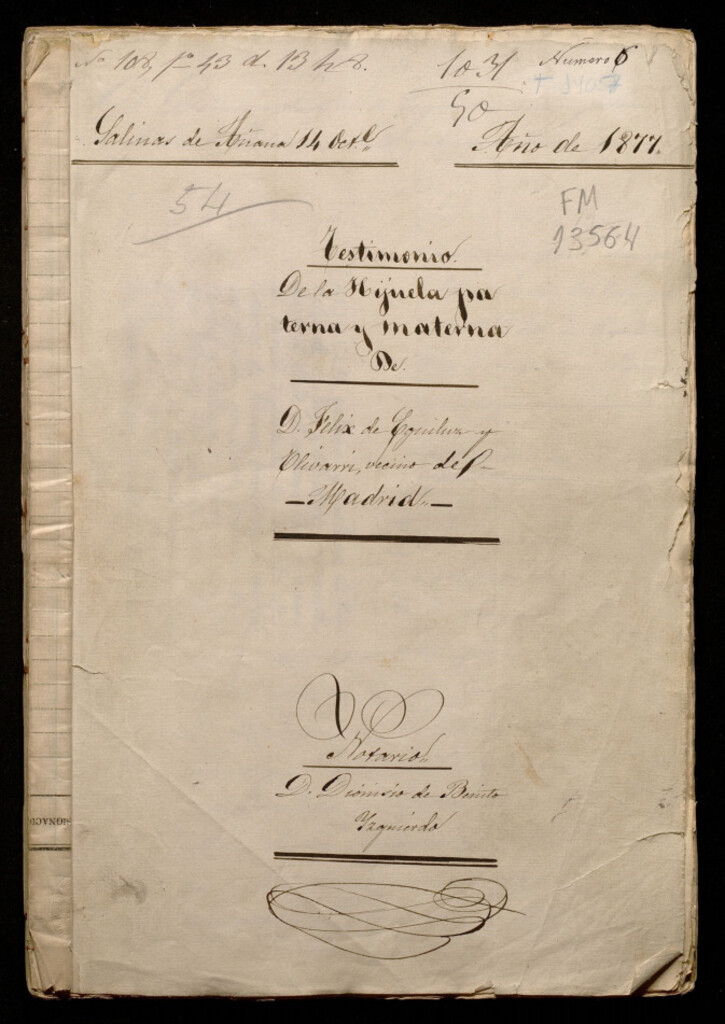 Nº 108, fº 43 d. 13 h 8.
1031
Numero 6
50
Salinas de Añana 14 Octe.
Año de 1877.
54
FM
13564
Testimonio.
De la Hijuela pa
terna y materna
De.
D. Felix de Eguiluz y
Olivarri, vecino de
Madrid.
Notario.
D. Dionisio de Benito
Yzquierdo
SIGNACIO